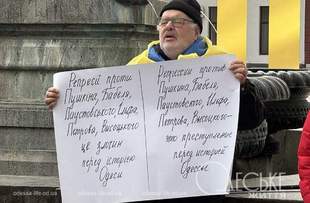 Репресії проти
Пушкіна, Бабеля,
Паустовського, Ільфа,
Петрова, Висоцького
це злочин
перед історією
Одеси
Репрессии против
Пушкина, Бабеля,
Паустовского, Ильфа,
Петрова, Высоцкого-
это преступление
перед историей
Одессы
ОДЕСЬКЕ
ЖИТТЯ
odessa-life.od.ua
odessa-life.od.ua